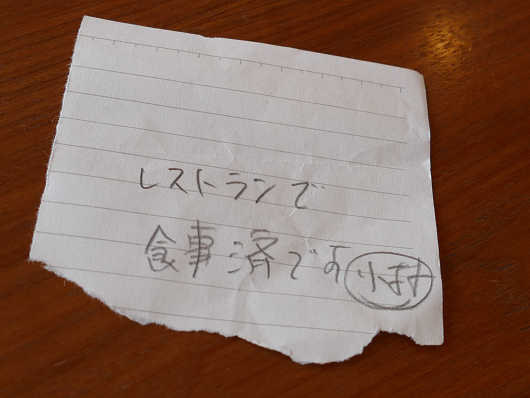 レストランで
食事済です 小村